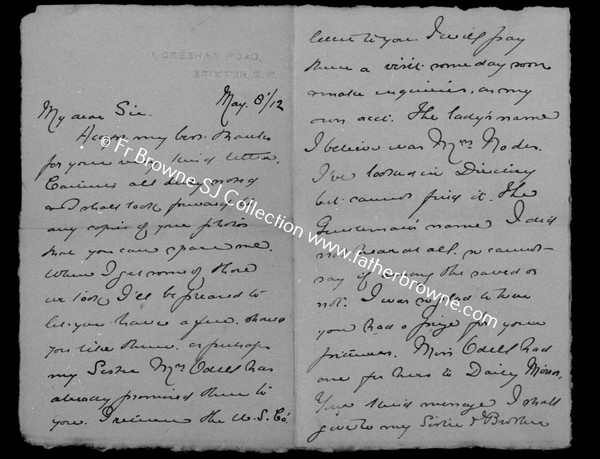 GRESHAM ROAD,
BRIXTON, S.W.
May 8/12
My dear Sir.
Accept my best thanks
for your very kind letter.
Contents all duly noted
and shall look forward to
any copies of your photos
that you can spare me.
When I get some of those
we took I'll be pleased to
let you have a few, should
you like them, or perhaps
my Sister Mrs Odell has
already promised them to
you. I return the U.S. Co's
letter to you I will pay
them a visit some day soon
& make inquiries, on my
own acct. The lady's name
I believe was Mrs
I've looked in Directory
but cannot find it. The
Gentleman's name I did
not hear at all, so cannot
say if among the saved or
not. I was so glad to hear
you had a prize for your
pictures. Miss Odell had
one for hers to Daily Mirror.
Your kind message I shall
give to my Sister & Brother
© Fr Browne SJ Collection www.fatherbrowne.com